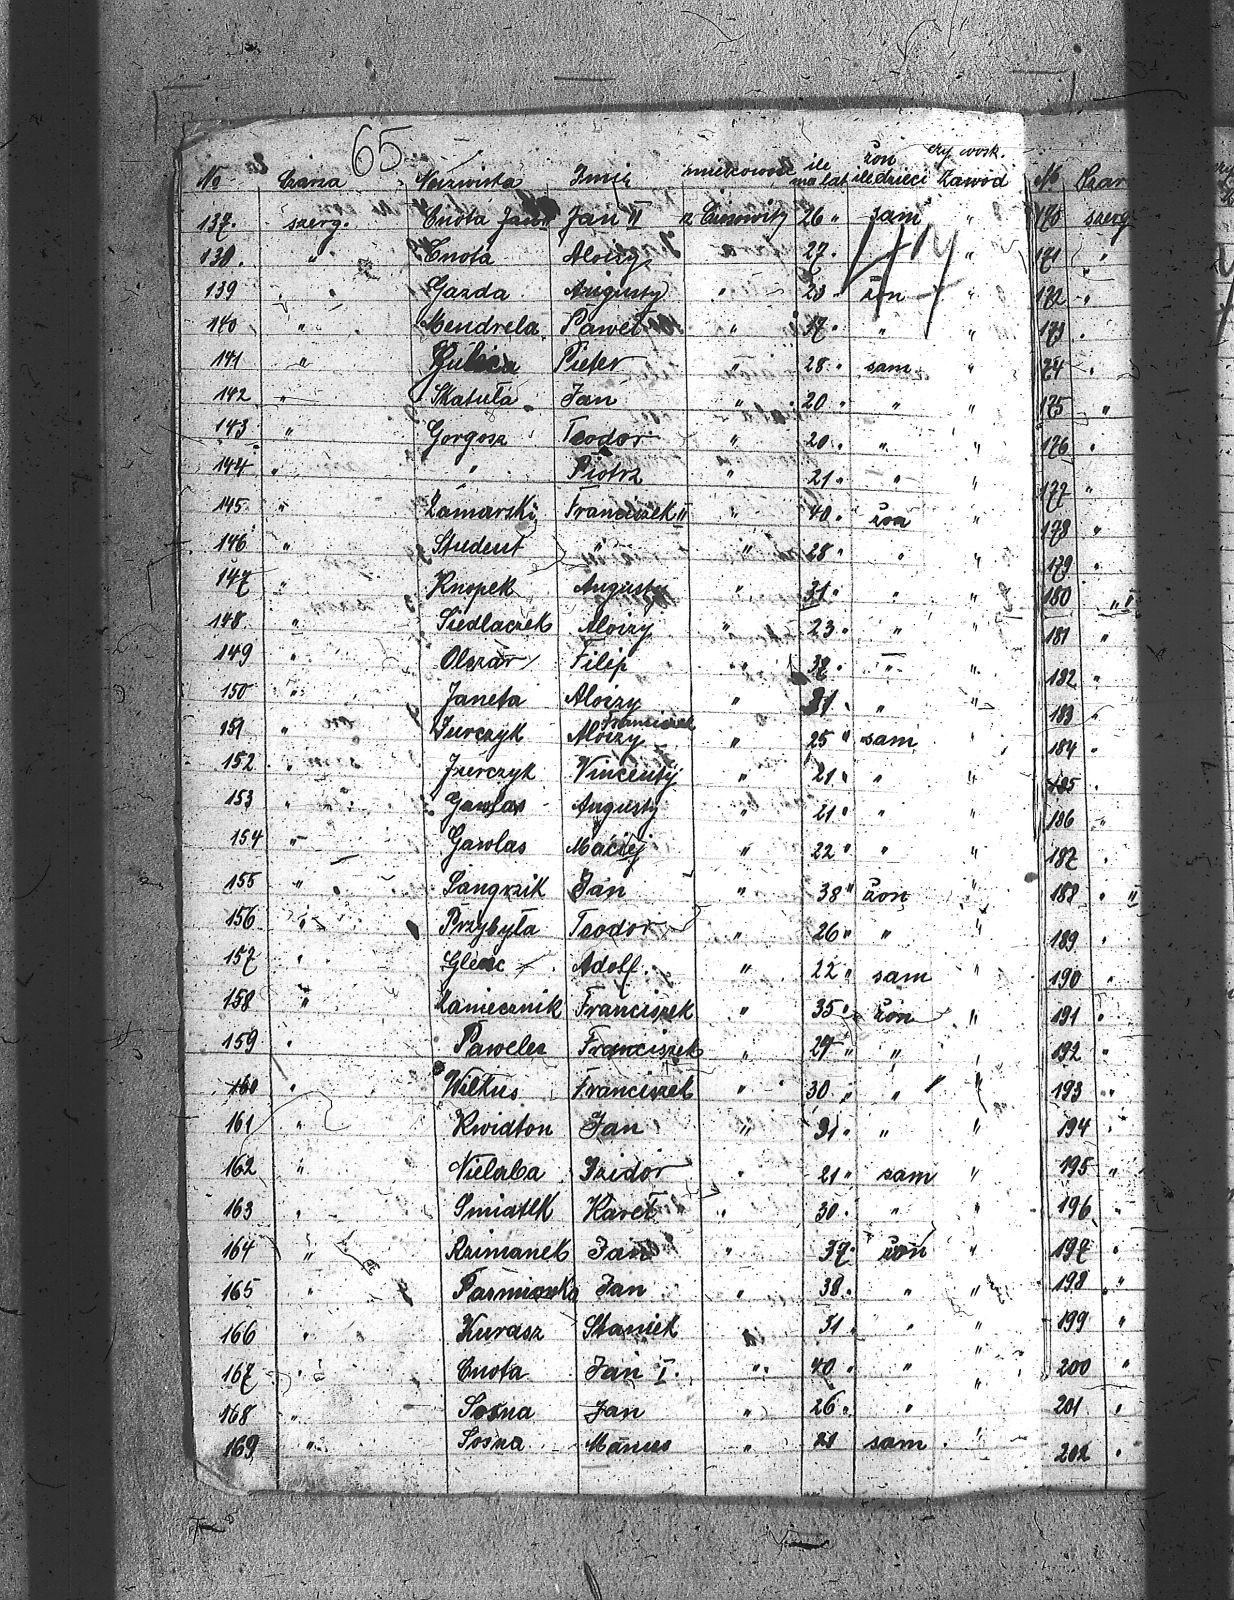 65
No Szarża Nazwiska Imię miejscowość ile ma lat żon ile dzieci czy wojsk. Zawód
137. szerg. Cnota Jan II z 26 " sam "
138. " Cnota Alojzy 27. "
139 " Gazda Augusty " 23 " żon "
140 " Mendrela Paweł " 37. " "
141 " Pieter " 28 " sam "
142 " Skatuła Jan " 20 " " "
143 " Gorgosz Teodor " 20 " " "
144 " " Piotrz " 21 " " "
145 " Zamarski Franciszek II " 40 " żon "
146 " Student " " 28 " " "
147 " Knopek Augusty " 31 " " "
148 " Siedlaczek Alojzy " 23 " " "
149 " Olszar Filip " 38. " "
150 " Janeta Alojzy " 31. " "
151 " Jurczyk Franciszek Alojzy " 25 " sam "
152 " Jurczyk Vincenty " 21 " " "
153 " Gawlas Augusty 21 " " "
154 " Gawlas Maciej " 22 " " "
155 " Sangrzik Jan " 38 " żon "
156 " Przybyła Teodor " 26 " " "
157 " Adolf. " 22 " sam "
158 " Kaniecznik Franciszek " 35 " żon "
159 " Pawelec Franciszek " 27 " " "
160 " Wilkus Franciszek " 30 " " "
161 " Kwidton Jan " 31 " " "
162 " Nielaba Izidor " 21 " sam "
163 " Smiatek Kareł " 30 " " "
164 " Rzimanek Jan " 37. żon "
165 " Jan " 38. " "
166 " Kurasz Staniek " 31 " " "
167 " Cnota Jan I. " 40 " " "
168 " Sosna Jan " 26 " "
169 " Sosna " 21 " sam "
No Szar
170 szerg
171 "
172 "
173 "
174 "
175 "
176 "
177 "
178 "
179 "
180 "
181 "
182 "
183 "
184 "
185
186 "
187 "
188 " II
189 "
190 "
191 "
192 "
193 "
194
195 "
196 "
197 "
198 "
199 "
200 "
201 "
202 "